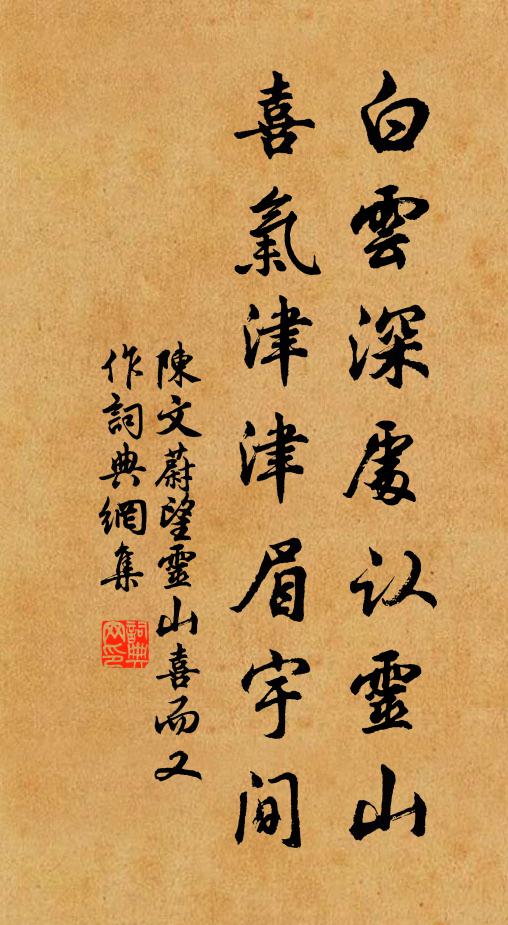 白雲深處认靈山
喜氣津津眉宇間
陳文蔚望靈山喜而又
作詞典網集
詞典網印